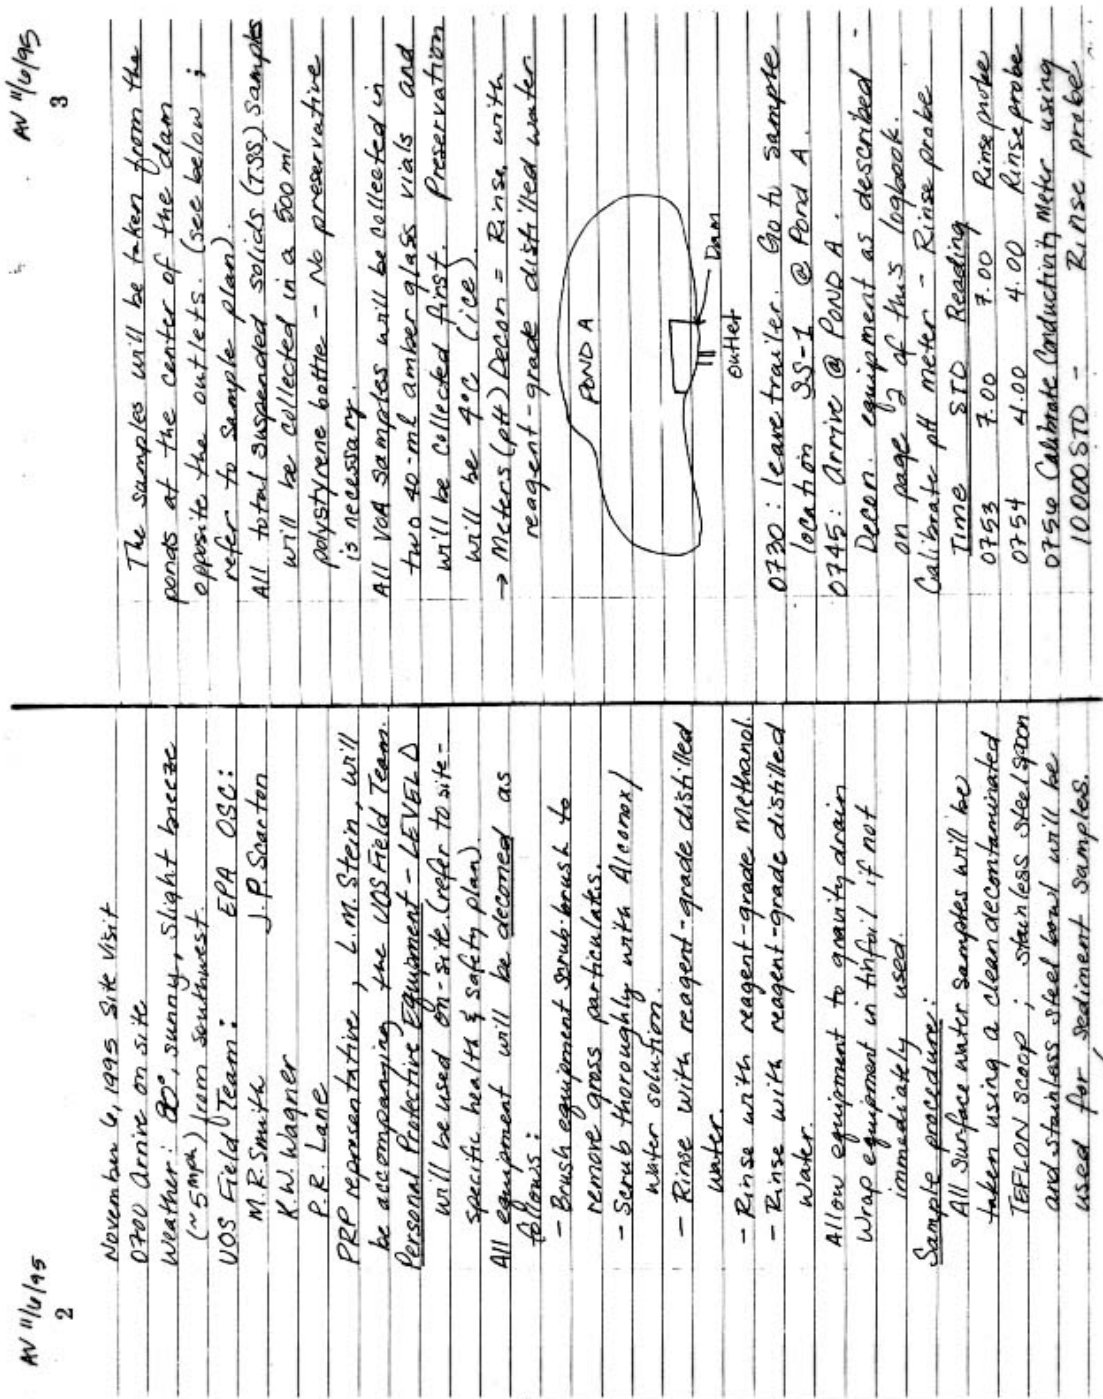 AV 11/6/95
2
November 6, 1995 Site Visit
0700 Arrive on site
Weather: 80°, sunny, slight breeze
(~5mph) from southwest.
UOS Field Team: EPA OSC:
M.R. Smith J.P. Scarton
K.W. Wagner
P.R. Lane
PRP representative, L.M. Stein, will
be accompanying the UOS Field Team.
Personal Protective Equipment - LEVEL D
will be used on-site (refer to site-
specific health & safety plan).
All equipment will be deconed as
follows:
- Brush equipment scrub-brush to
remove gross particulates.
- Scrub thoroughly with Alconox/
water solution.
- Rinse with reagent-grade distilled
water.
- Rinse with reagent-grade Methanol.
- Rinse with reagent-grade distilled
water.
Allow equipment to gravity drain
Wrap equipment in tinfoil if not
immediately used.
Sample procedure:
All surface water samples will be
taken using a clean decontaminated
TEFLON scoop; stainless steel spoon
and stainless steel bowl will be
used for sediment samples.
AV 11/6/95
3
The samples will be taken from the
ponds at the center of the dam
opposite the outlets. (see below;
refer to sample plan).
All total suspended solids (TSS) samples
will be collected in a 500 ml
polystyrene bottle - No preservative
is necessary.
All VOA samples will be collected in
two 40-ml amber glass vials and
will be collected first. Preservation
will be 4°C (ice).
→ Meters (pH) Decon = Rinse with
reagent-grade distilled water.
POND A
Dam
outlet
0730: leave trailer. Go to sample
location SS-1 @ Pond A.
0745: Arrive @ POND A.
Decon. equipment as described -
on page 2 of this logbook.
Calibrate pH meter - Rinse probe
Time STD Reading
0753 7.00 7.00 Rinse probe
0754 4.00 4.00 Rinse probe
0756 Calibrate Conductivity Meter using
10000 STD - Rinse probe